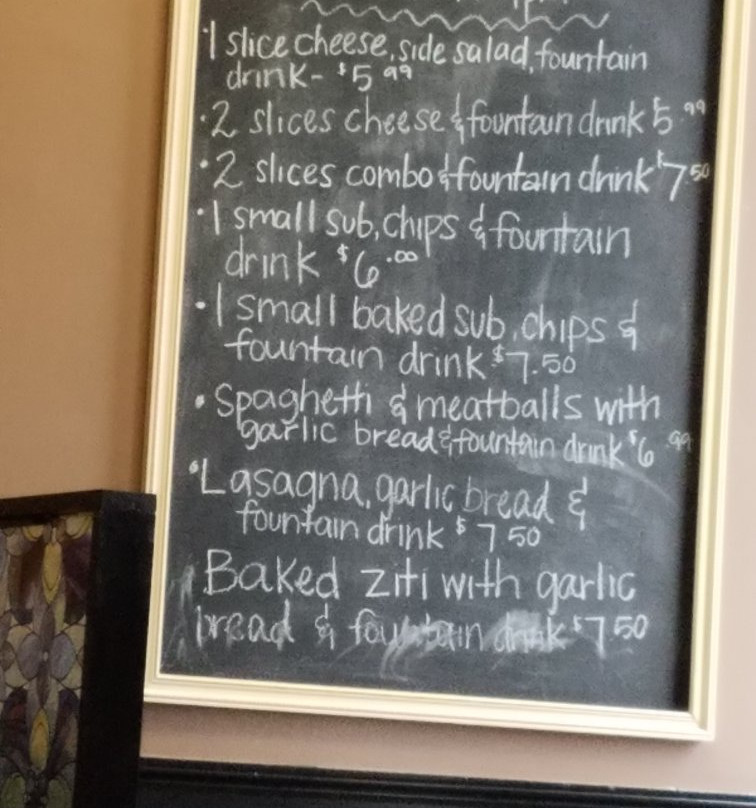 ·1 slice cheese, side salad, fountain
drink- $5 99
·2 slices cheese & fountain drink 5.99
·2 slices combo & fountain drink $7 50
·1 small sub, chips & fountain
drink $6.00
·1 small baked sub, chips &
fountain drink $7.50
·Spaghetti & meatballs with
garlic bread & fountain drink $6.99
·Lasagna, garlic bread &
fountain drink $7 50
·Baked ziti with garlic
bread & fountain drink $7 50